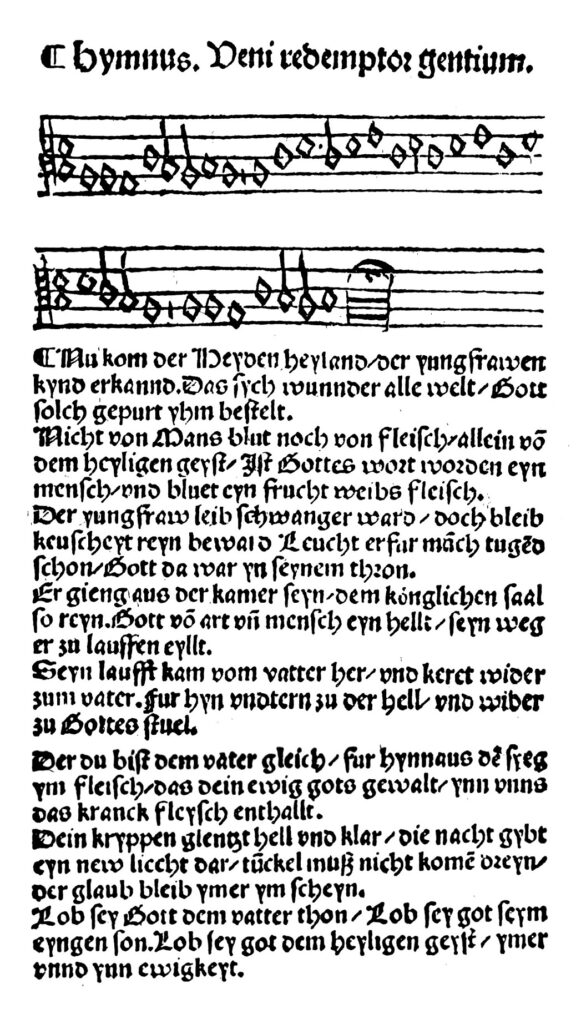 ¶ Hymnus. Veni redemptor gentium.
¶ Nu kom der Heyden heyland/der yungfrawen
kynd erkannd.Das sych wunnder alle welt/Gott
solch gepurt yhm bestelt.
Nicht von Mans blut noch von fleisch/allein võ
dem heyligen geyst/Ist Gottes wort worden eyn
mensch/vnd bluet eyn frucht weibs fleisch.
Der yungfraw leib schwanger ward/doch bleib
keuscheyt reyn beward Leucht erfur mãch tugẽd
schon/Gott da war yn seynem thron.
Er gieng aus der kamer seyn/dem könglichen saal
so reyn.Gott võ art vñ mensch eyn hellt/seyn weg
er zu lauffen eyllt.
Seyn laufft kam vom vatter her/vnd keret wider
zum vater.fur hyn vndtern zu der hell/vnd wider
zu Gottes stuel.
Der du bist dem vater gleich/fur hynnaus dẽ syeg
ym fleisch/das dein ewig gots gewalt/ynn vnns
das kranck fleysch enthallt.
Dein kryppen glentzt hell vnd klar/die nacht gybt
eyn new liecht dar/tũckel muß nicht komẽ dreyn/
der glaub bleib ymer ym scheyn.
Lob sey Gott dem vatter thon/Lob sey got seym
eyngen son.Lob sey got dem heyligen geyst/ymer
vnnd ynn ewigkeyt.